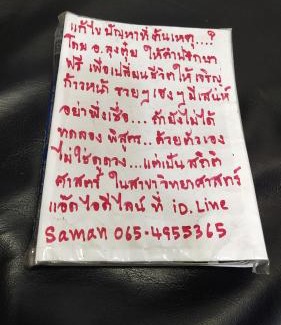 แก้ไขปัญหาที่ต้นเหตุ....?
โดย อ.ลุงตุ้ย ให้คำปรึกษา
ฟรี เพื่อเปลี่ยนชีวิตให้เจริญ
ก้าวหน้า รวยๆเฮงๆมีเสน่ห์
อย่าพึ่งเชื่อ... ถ้ายังไม่ได้
ทดลอง พิสูตร.. ด้วยตัวเอง
ไม่ใช่ดูดวง....แต่เป็น สถิติ
ศาสตร์ ในสาขาวิทยาศาสตร์
แอ๊ดไอดีไลน์ ที่ iD.Line
Saman 065-4955365